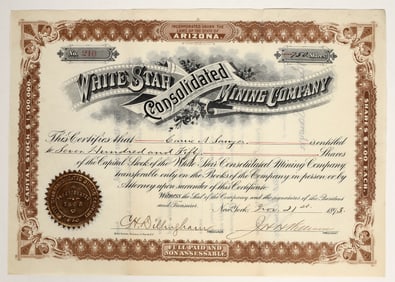 INCORPORATED UNDER THE
LAWS OF THE STATE OF
ARIZONA.
No. 210
750 Shares
WHITE STAR
Consolidated
MINING COMPANY
This Certifies that A. Sawyer is entitled
to Seven Hundred and Fifty Shares
of the Capital Stock of the White Star Consolidated Mining Company
transferable only on the Books of the Company in person or by
Attorney upon surrender of this Certificate.
Witness the Seal of the Company and the signatures of the President
and Treasurer.
New York, 21st
C H Dillingham
FULL PAID AND
NON ASSESSABLE